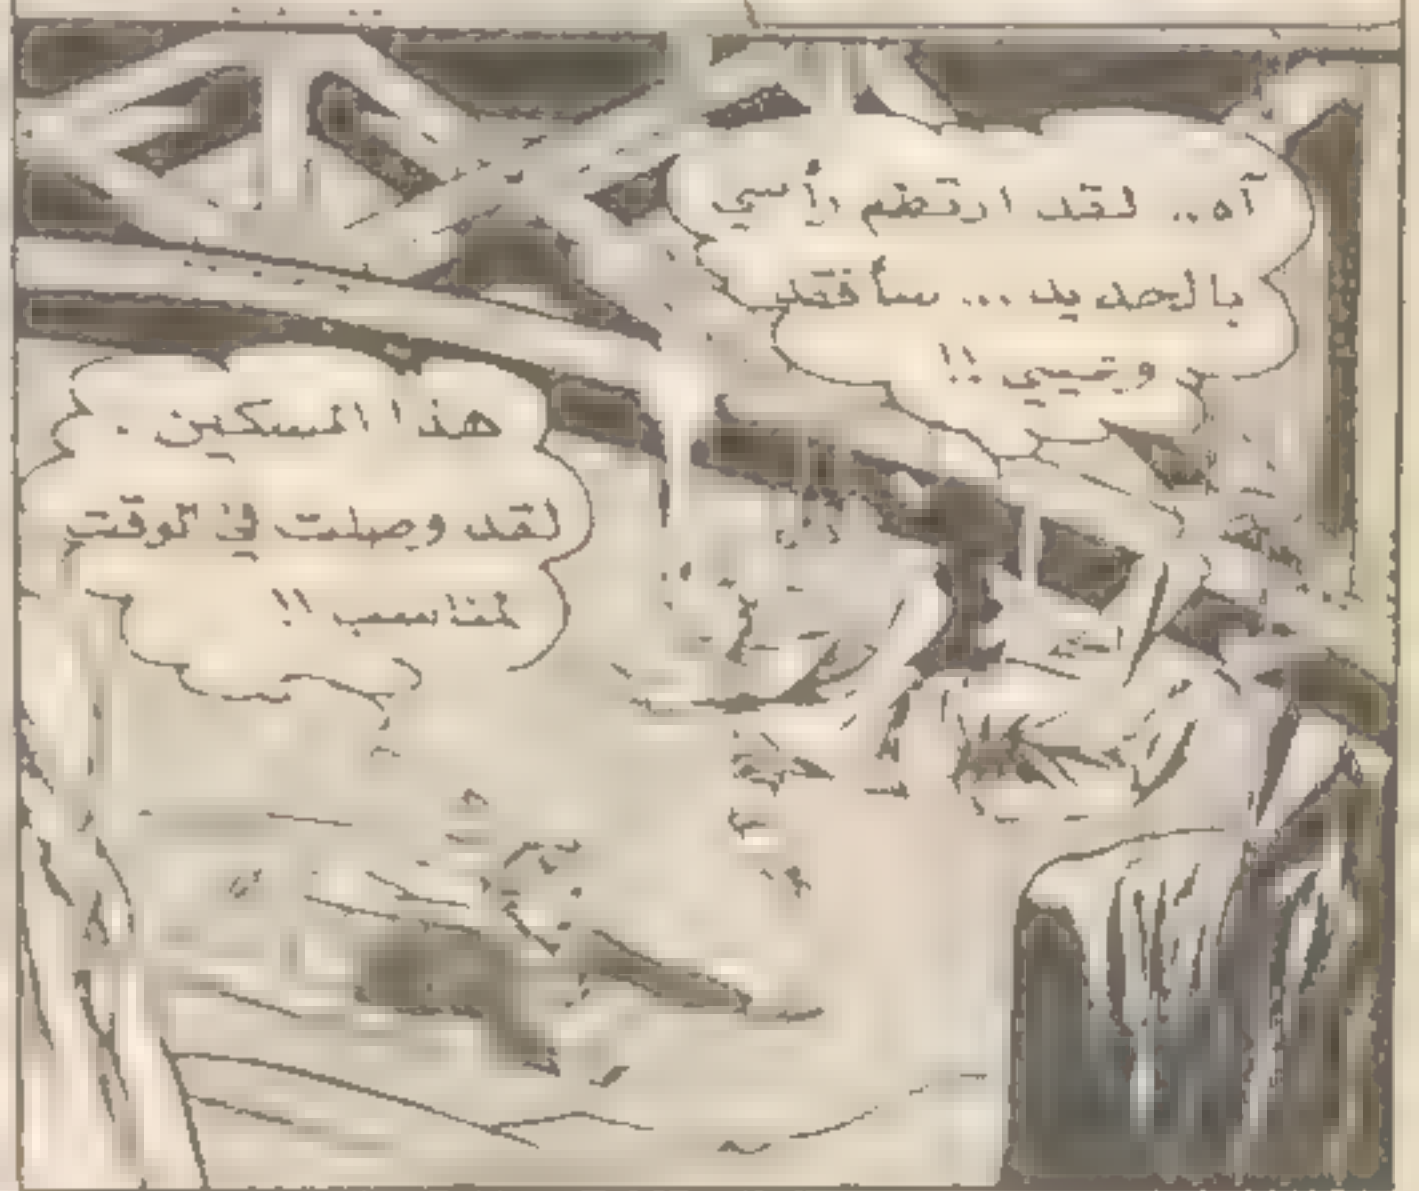 آه.. لقد ارتطم رأسي
بالحديد ... سأفقد
وعيي !!
هذا المسكين .
لقد وصلت في الوقت
المناسب !!